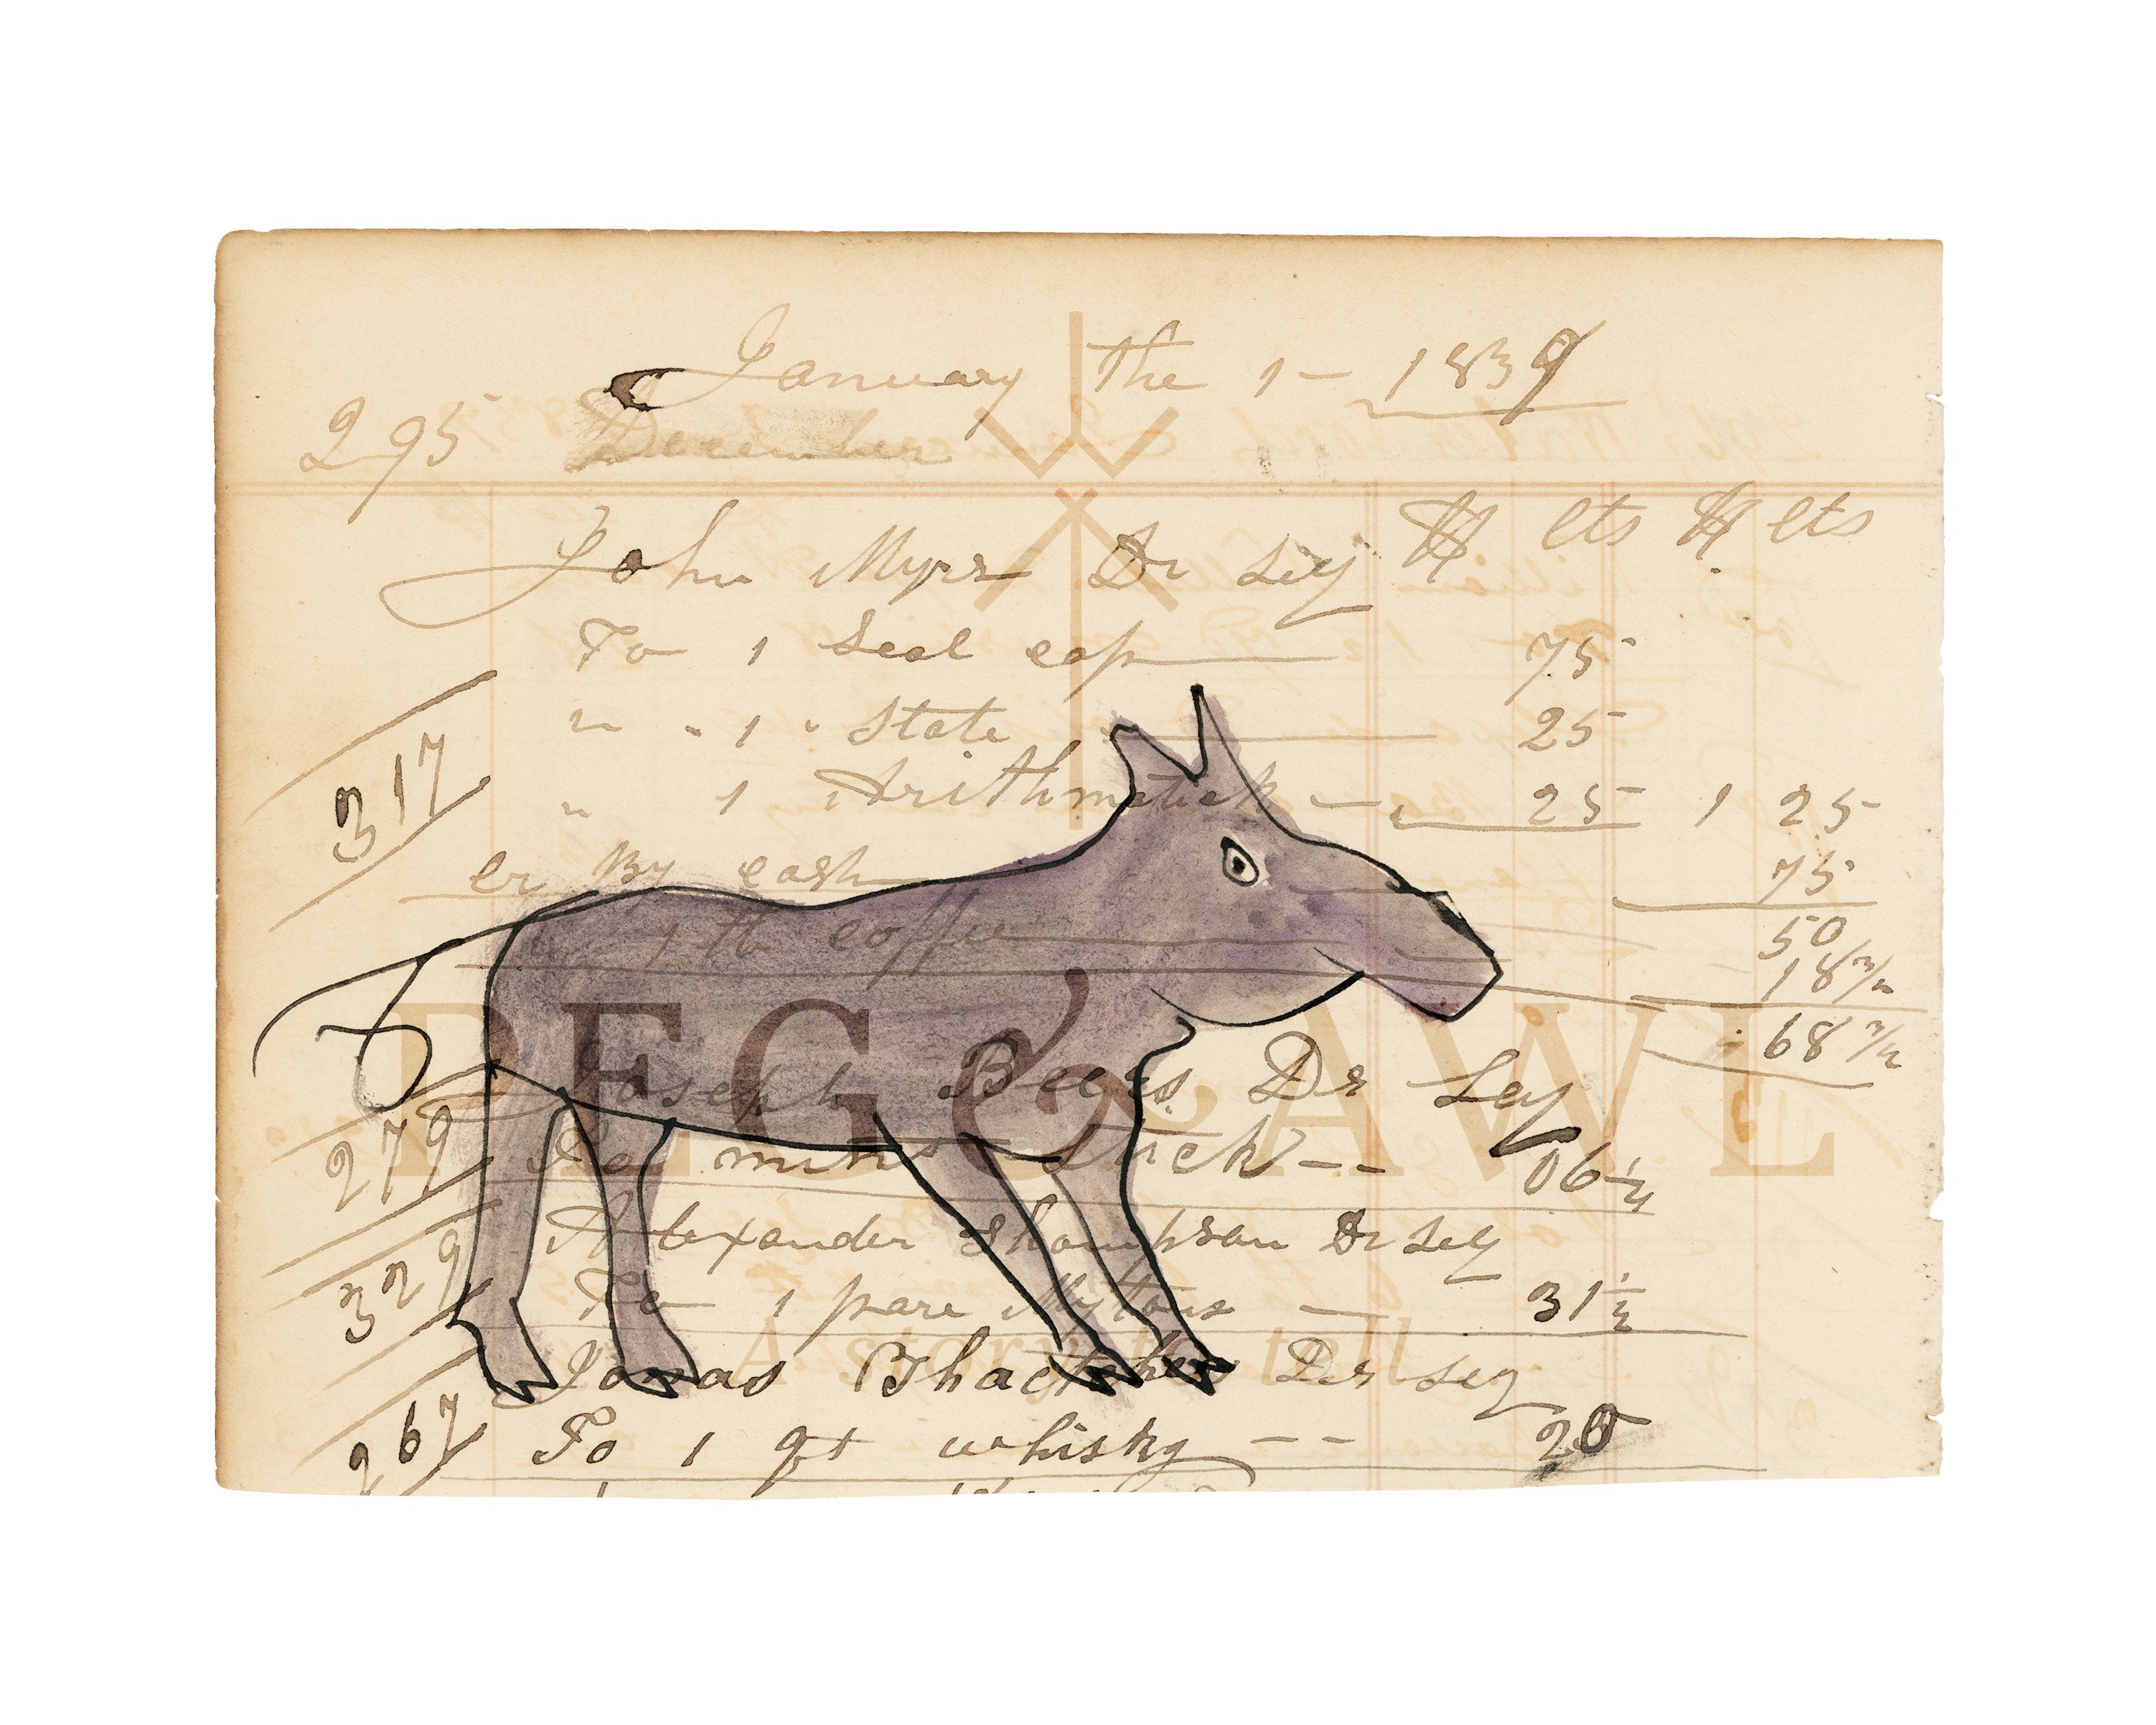 January the 1 - 1839
295 December
John Myrs Dr Ley $ cts $ cts
To 1 Seal cap 75
" " 1 " State 25
" 1 Arithmetick 25 1 25
317
Cr By cash 75
50
" 1 lb coffee 18 3/4
68 3/4
PEG & AWL
Joseph Beers Dr Ley
279 To mins 06 1/4
Alexander Thompson Dr Ley
329 To 1 pare Myttons 31 1/2
A story to tell
Jonas Dr Ley
267 To 1 qt whisky -- 20